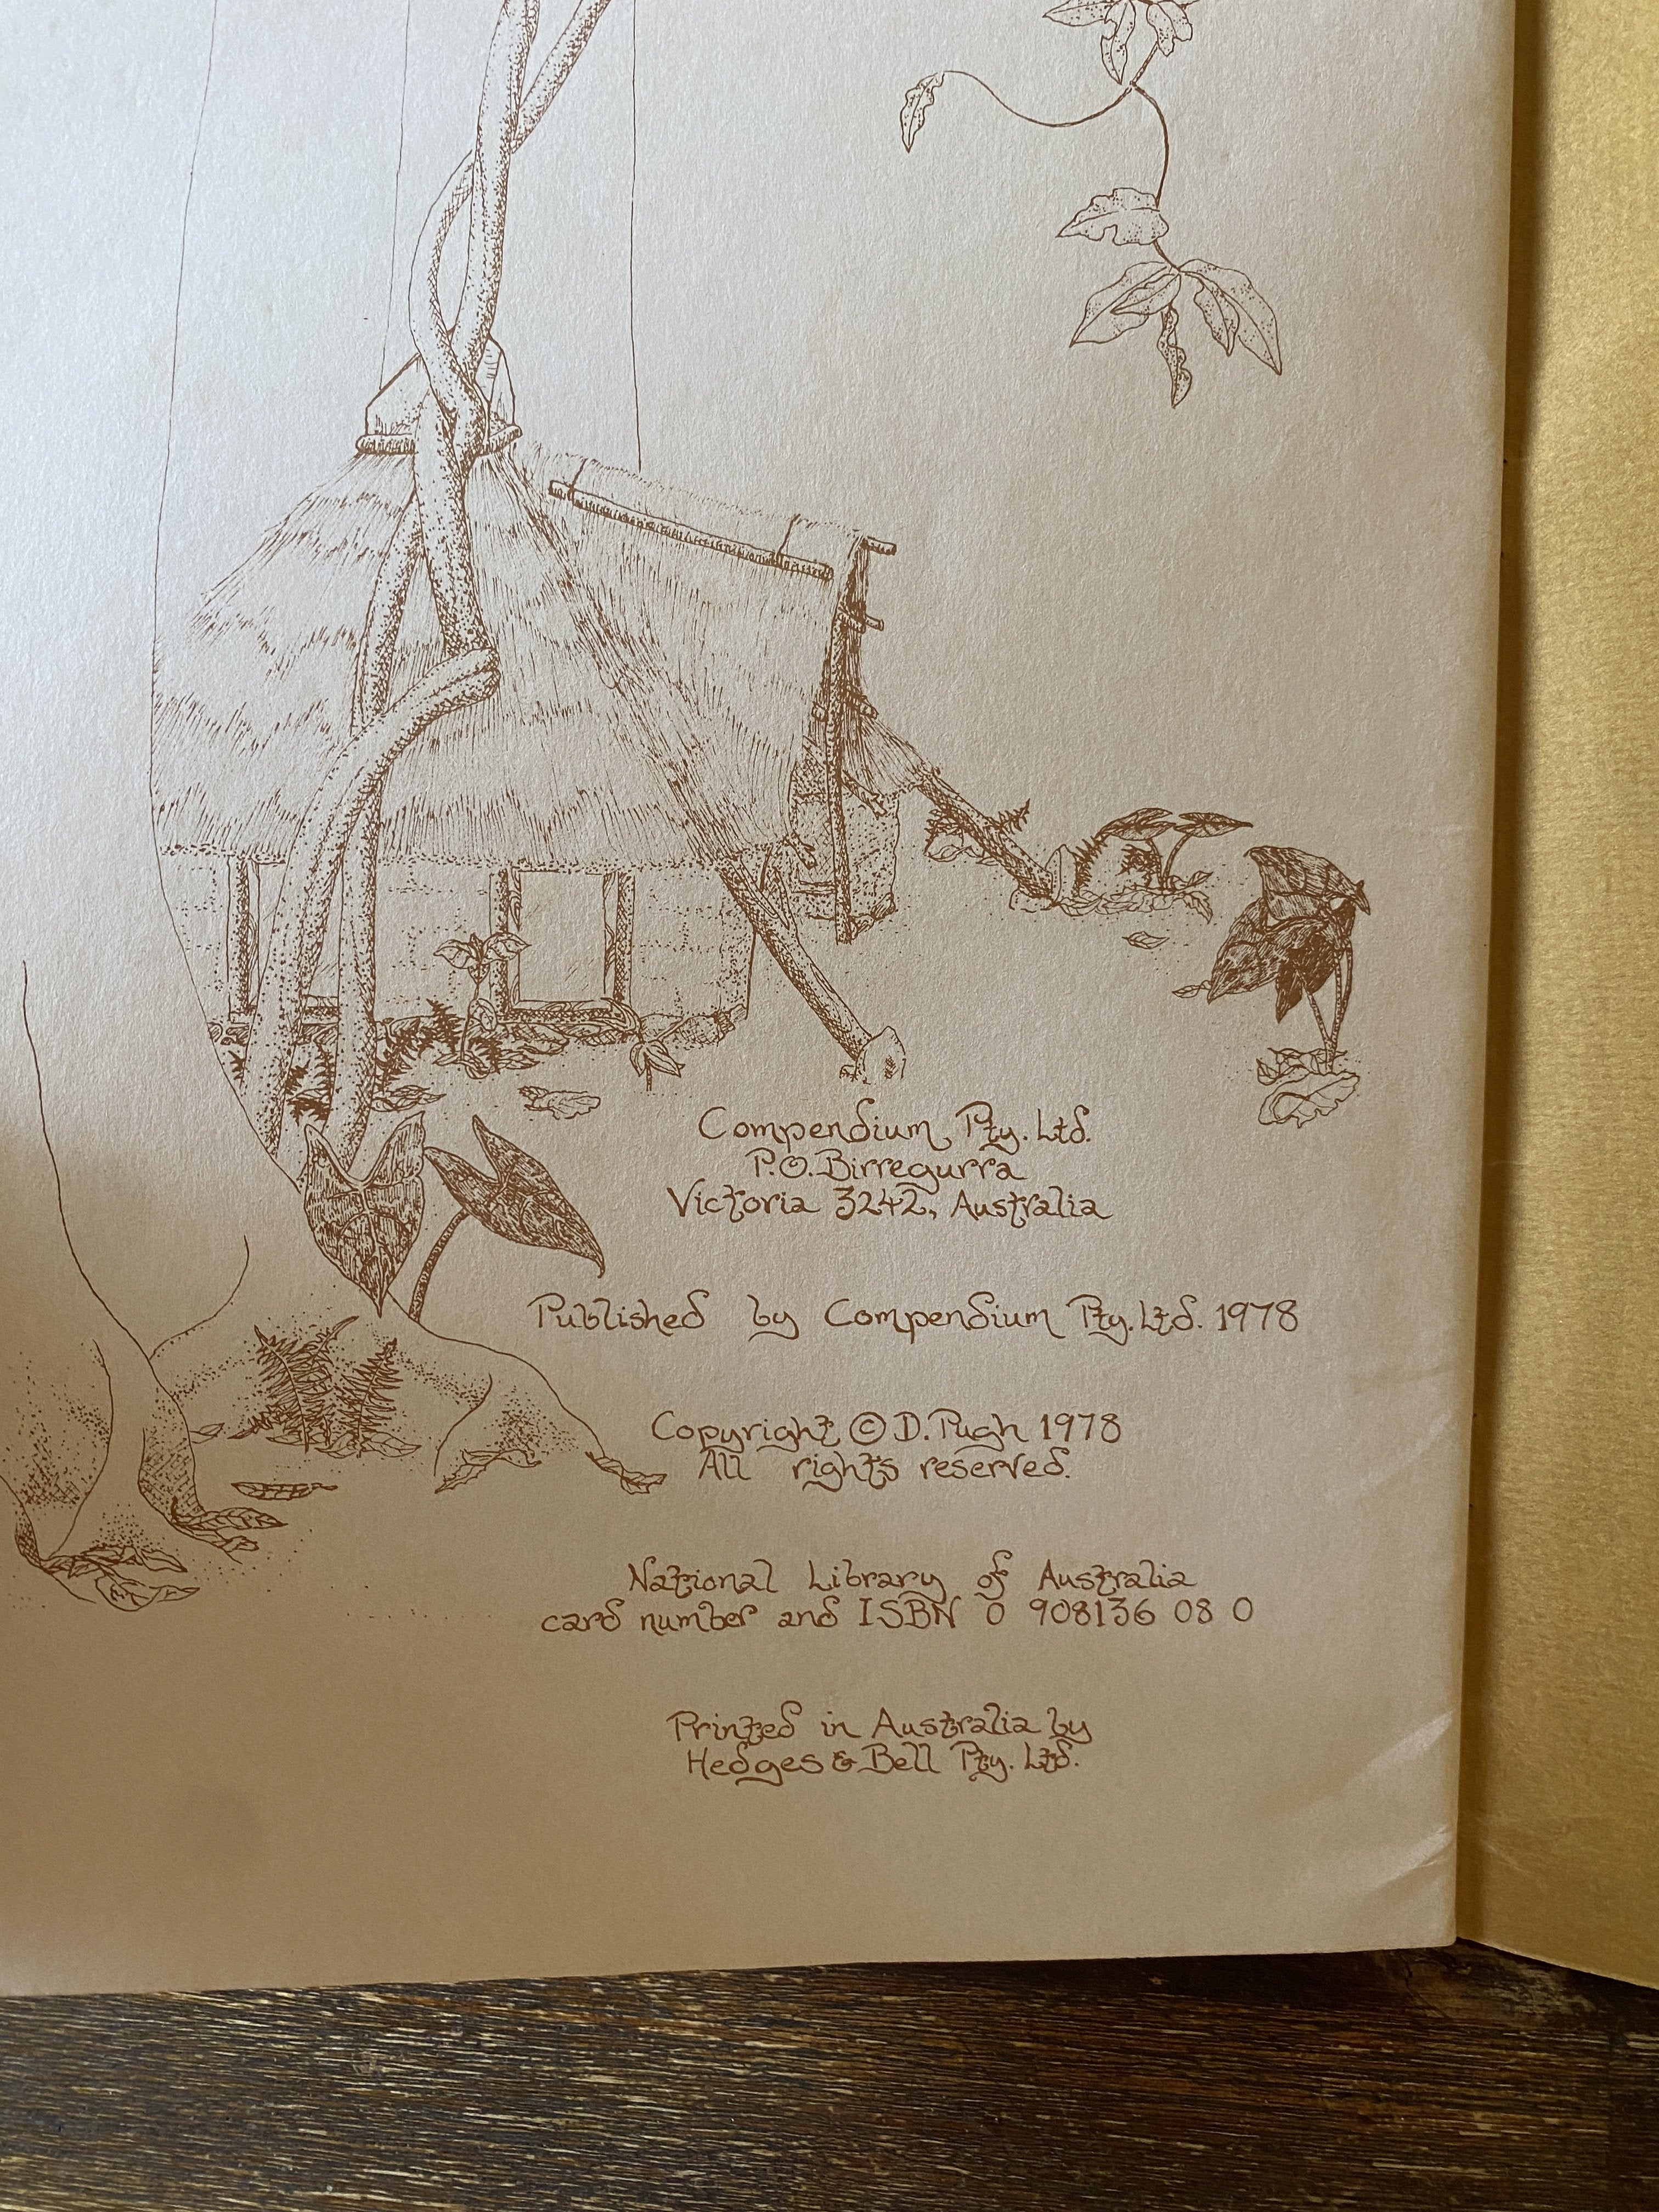 Compendium Pty. Ltd.
P.O. Birregurra
Victoria 3242, Australia
Published by Compendium Pty. Ltd. 1978
Copyright © D. Pugh 1978
All rights reserved.
National Library of Australia
card number and ISBN 0 908136 08 0
Printed in Australia by
Hedges & Bell Pty. Ltd.